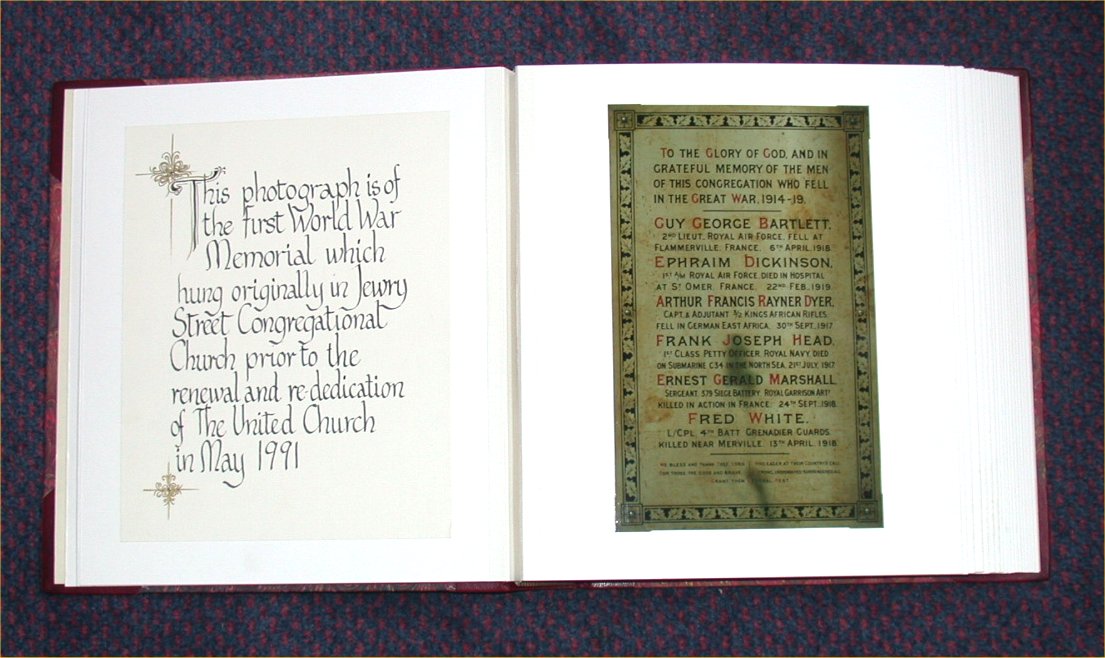 This photograph is of
the first World War
Memorial which
hung originally in Jewry
Street Congregational
Church prior to the
renewal and re-dedication
of The United Church
in May 1991
TO THE GLORY OF GOD, AND IN
GRATEFUL MEMORY OF THE MEN
OF THIS CONGREGATION WHO FELL
IN THE GREAT WAR, 1914-19.
GUY GEORGE BARTLETT,
2ND LIEUT. ROYAL AIR FORCE, FELL AT
FLAMMERVILLE, FRANCE. 6TH APRIL, 1918.
EPHRAIM DICKINSON,
1ST A/M ROYAL AIR FORCE, DIED IN HOSPITAL
AT ST OMER, FRANCE. 22ND FEB. 1919.
ARTHUR FRANCIS RAYNER DYER,
CAPT. & ADJUTANT 3/2 KINGS AFRICAN RIFLES.
FELL IN GERMAN EAST AFRICA. 30TH SEPT. 1917.
FRANK JOSEPH HEAD,
1ST CLASS PETTY OFFICER, ROYAL NAVY, DIED
ON SUBMARINE C34 IN THE NORTH SEA, 21ST JULY, 1917.
ERNEST GERALD MARSHALL,
SERGEANT, 379 SIEGE BATTERY, ROYAL GARRISON ARTY
KILLED IN ACTION IN FRANCE. 24TH SEPT. 1918.
FRED WHITE,
L/CPL. 4TH BATT. GRENADIER GUARDS.
KILLED NEAR MERVILLE, 13TH APRIL, 1918.
WE BLESS AND THANK THEE, LORD, WHO EAGER AT THEIR COUNTRY'S CALL
FOR THESE THE GOOD AND BRAVE
GRANT THEM ETERNAL REST